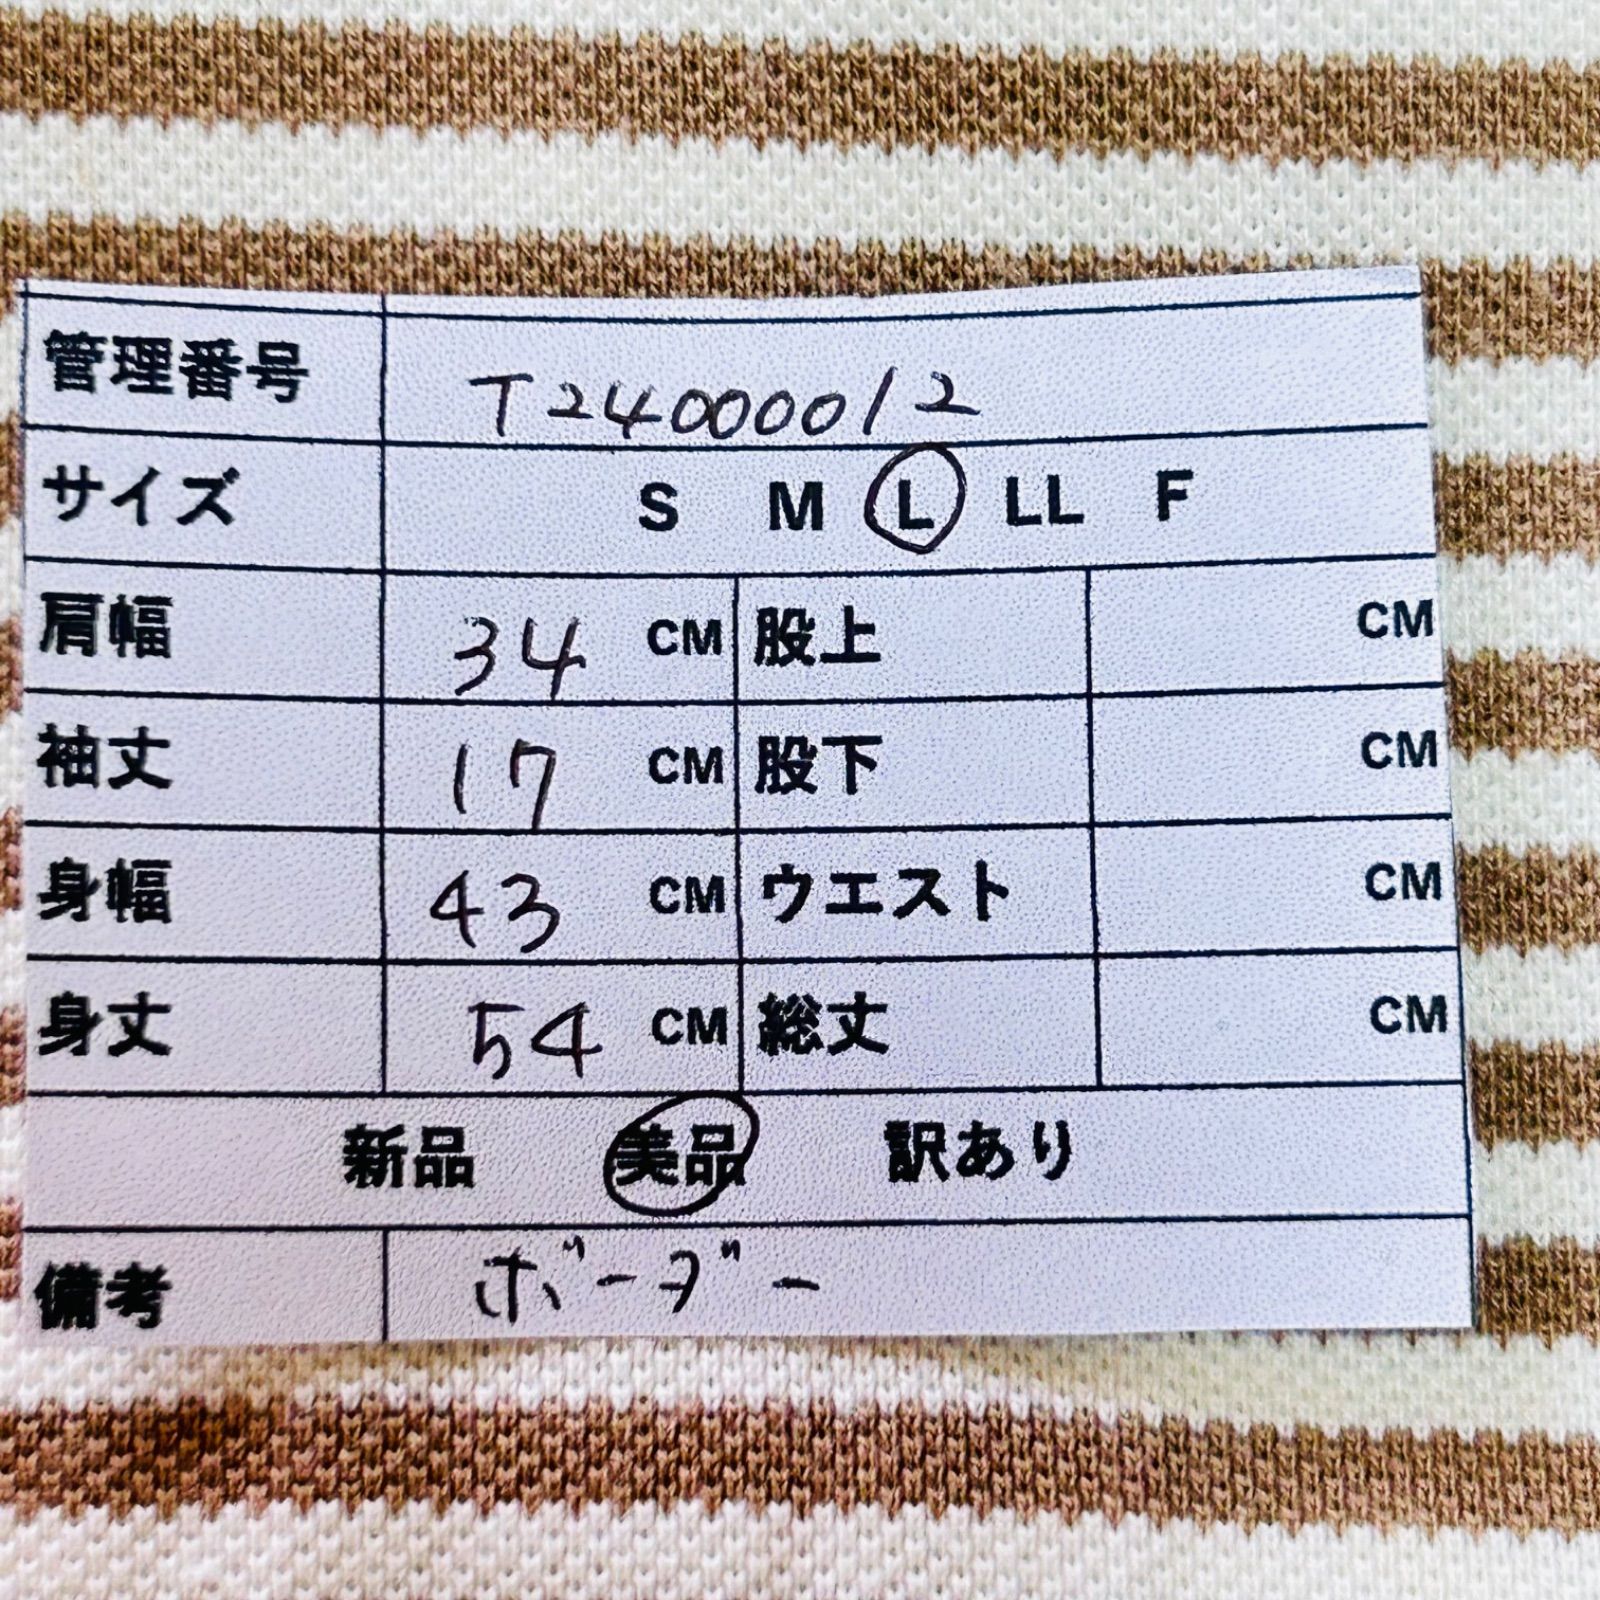 管理番号 T24000012
サイズ S M L LL F
肩幅 34 CM 股上 CM
袖丈 17 CM 股下 CM
身幅 43 CM ウエスト CM
身丈 54 CM 総丈 CM
新品 美品 訳あり
備考 ボーダー